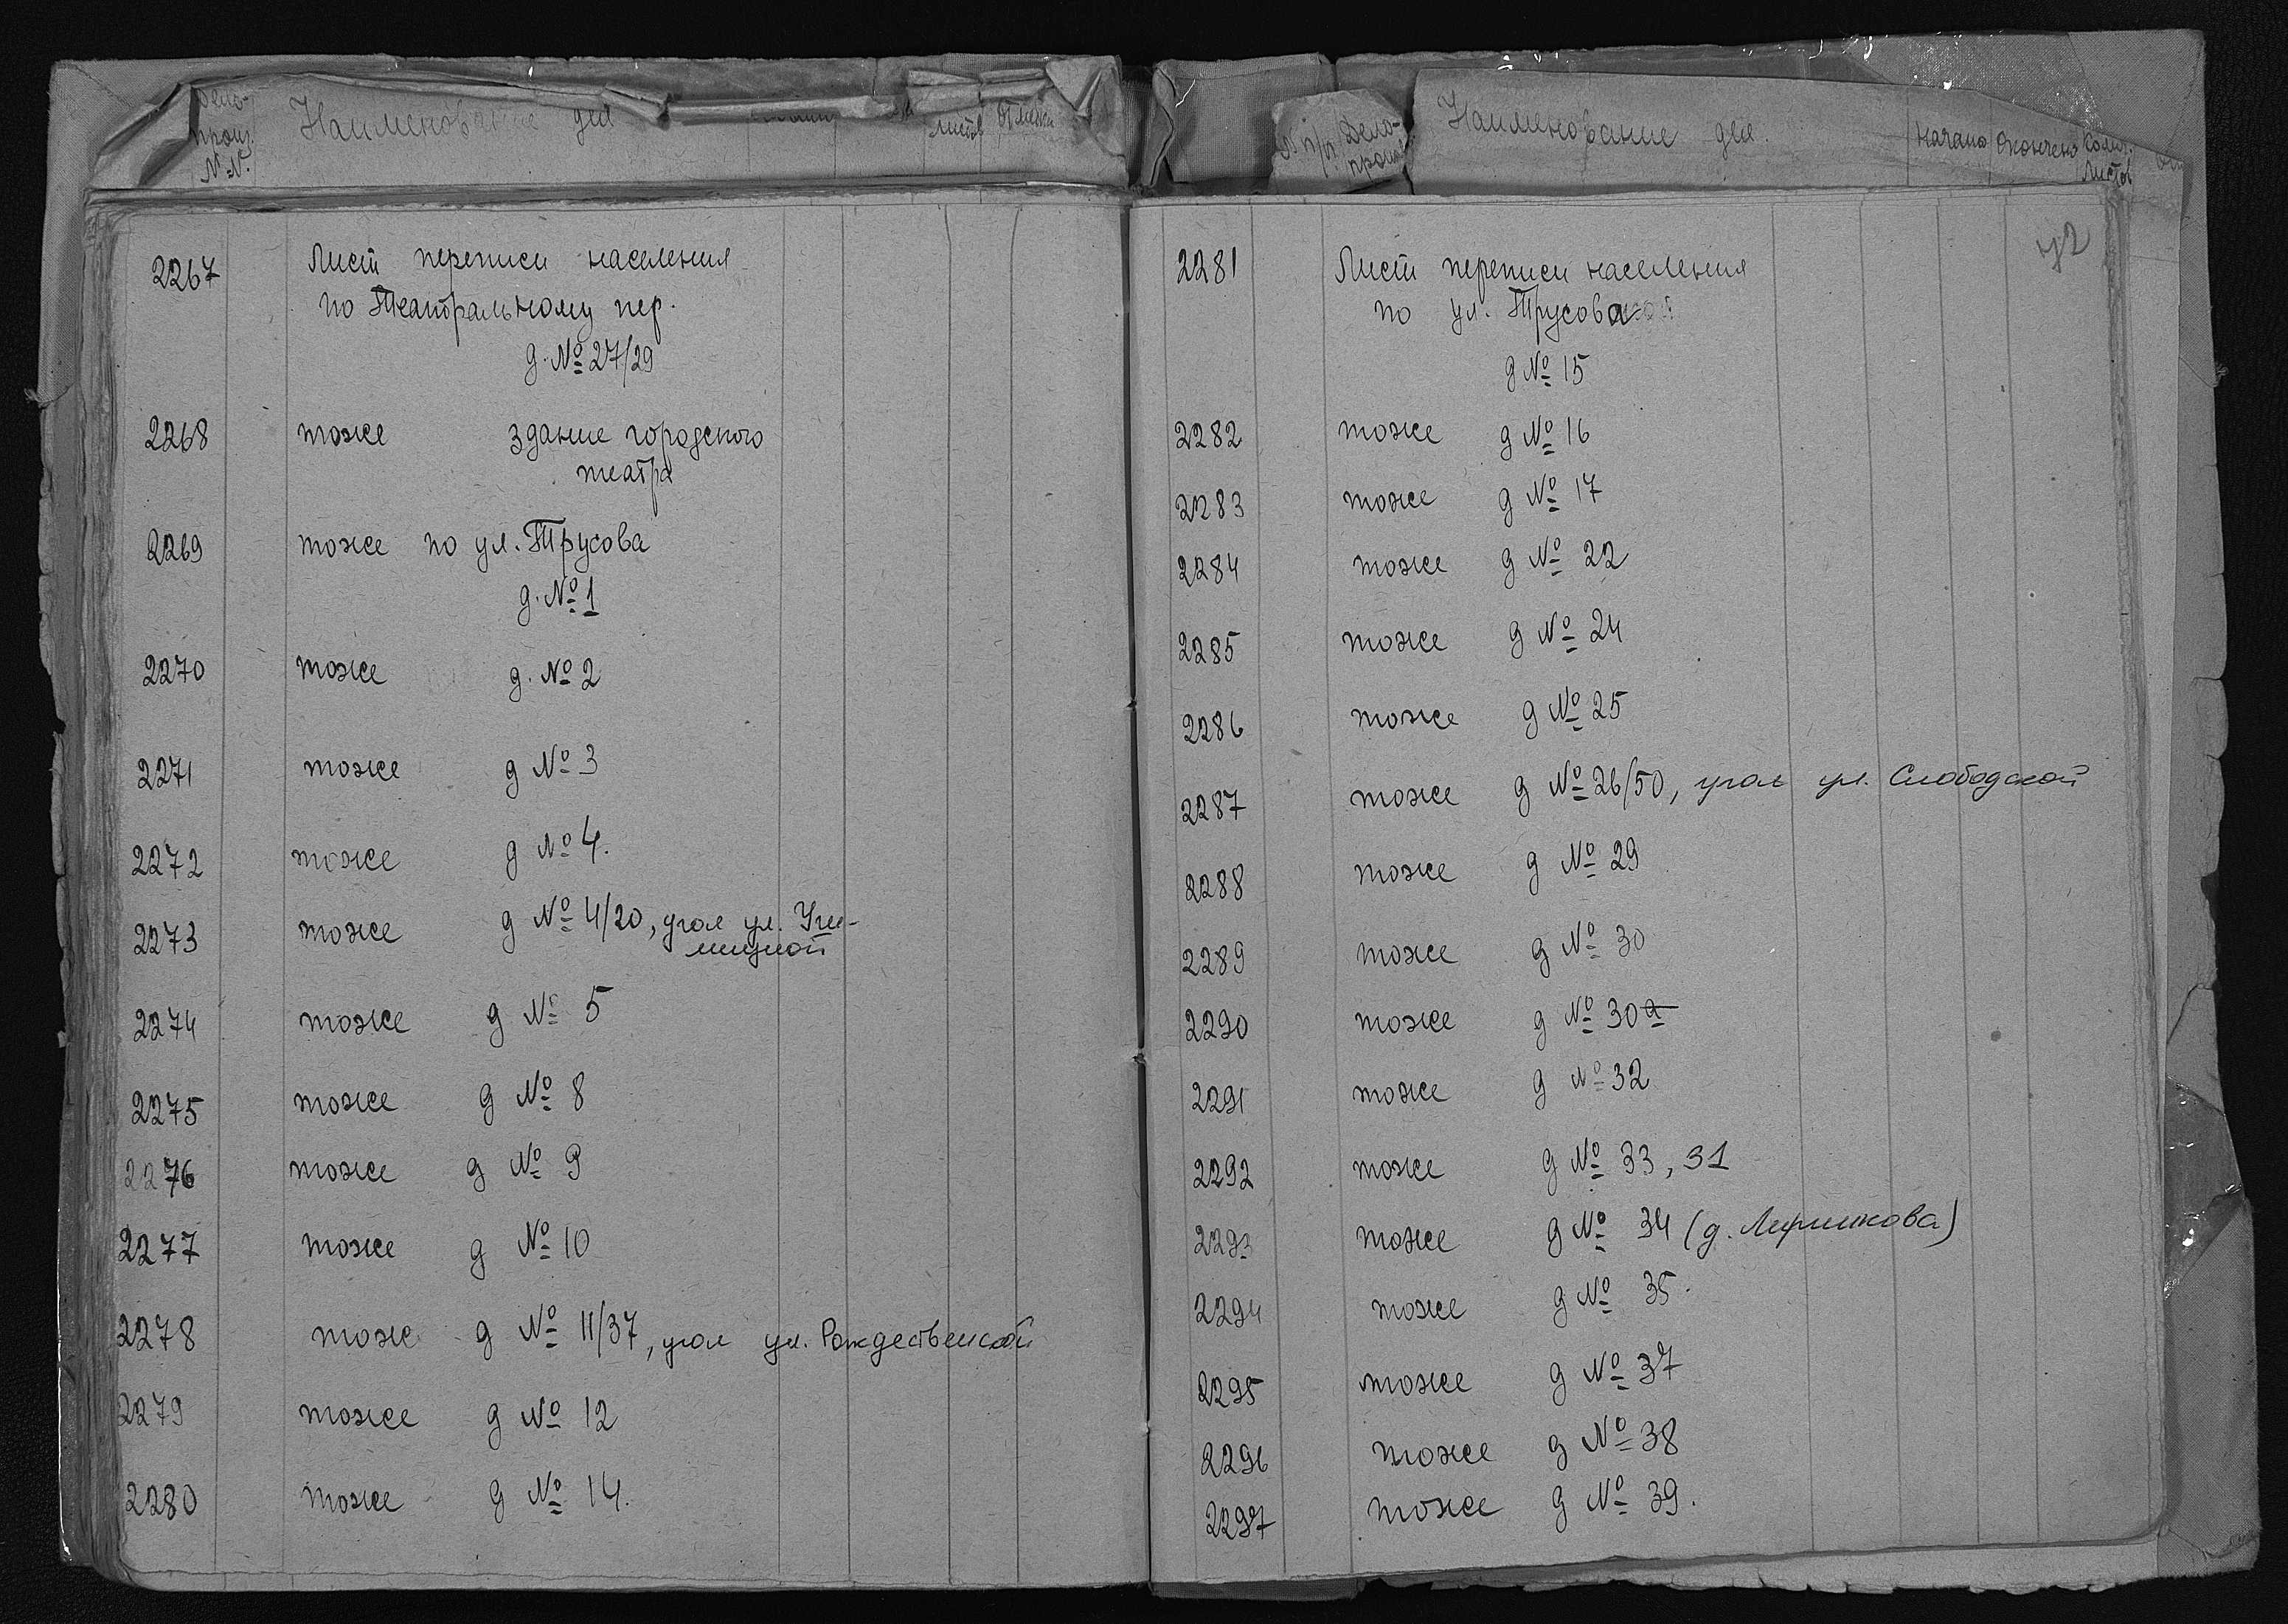 Наименование дел
листов
произ.
N.N.
2267 Лист переписи населения
по Театральному пер.
д. № 27/29
2268 тоже здание городского
театра
2269 тоже по ул. Трусова
д. № 1
2270 тоже д. № 2
2271 тоже д № 3
2272 тоже д № 4.
2273 тоже д № 4/20, угол ул.
2274 тоже д № 5
2275 тоже д № 8
2276 тоже д № 9
2277 тоже д № 10
2278 тоже д № 11/37, угол ул. Рождественской
2279 тоже д № 12
2280 тоже д № 14.
N. п/п Дело- Наименование дел. Начано Окончено Колич.
произ Листов
42
2281 Лист переписи населения
по ул. Трусова
д № 15
2282 тоже д № 16
2283 тоже д № 17
2284 тоже д № 22
2285 тоже д № 24
2286 тоже д № 25
2287 тоже д № 26/50, угол ул. Слободской
2288 тоже д № 29
2289 тоже д № 30
2290 тоже д № 30 а
2291 тоже д № 32
2292 тоже д № 33, 31
2293 тоже д № 34 (д.
2294 тоже д № 35.
2295 тоже д № 37
2296 тоже д № 38
2297 тоже д № 39.